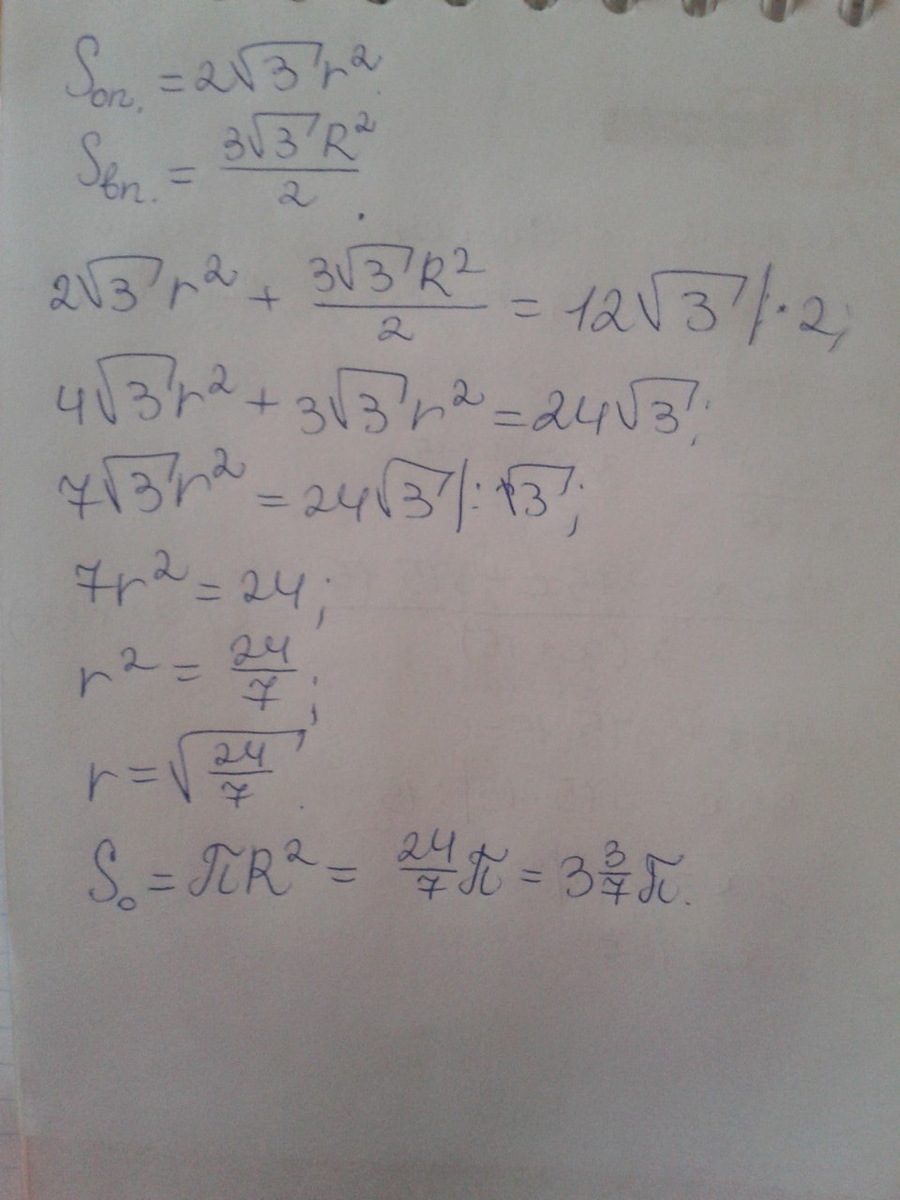 Sоп. = 2√3 r²
Sвп. = 3√3 R² / 2.
2√3 r² + 3√3 R² / 2 = 12√3 |·2;
4√3 r² + 3√3 r² = 24√3;
7√3 r² = 24√3 |:√3;
7r² = 24;
r² = 24/7;
r = √(24/7).
S₀ = πR² = 24/7 π = 3 3/7 π.